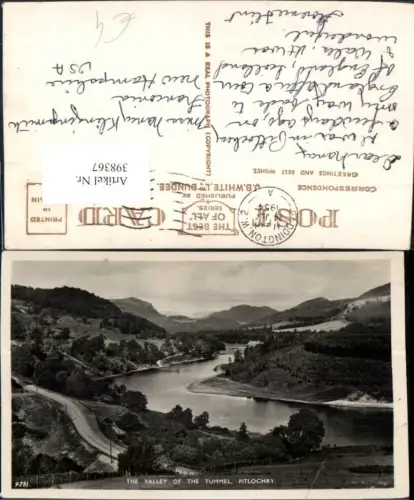 THIS IS A REAL PHOTOGRAPH (COPYRIGHT)
POST CARD
CORRESPONDENCE
GREETINGS AND BEST WISHES.
THE BEST
OF ALL
SERIES.
PUBLISHED BY
J.B. WHITE LTD DUNDEE
PRINTED
IN
PADDINGTON W.2
1954
A
Artikel Nr.
398367
Dear Nancy,
I was in Pitlochry
a few days ago, on
my way back to
England after a tour
of England, Scotland
& Wales. It was
wonderful.
Miss Nancy
New Hampshire
USA
9281.
THE VALLEY OF THE TUMMEL, PITLOCHRY.